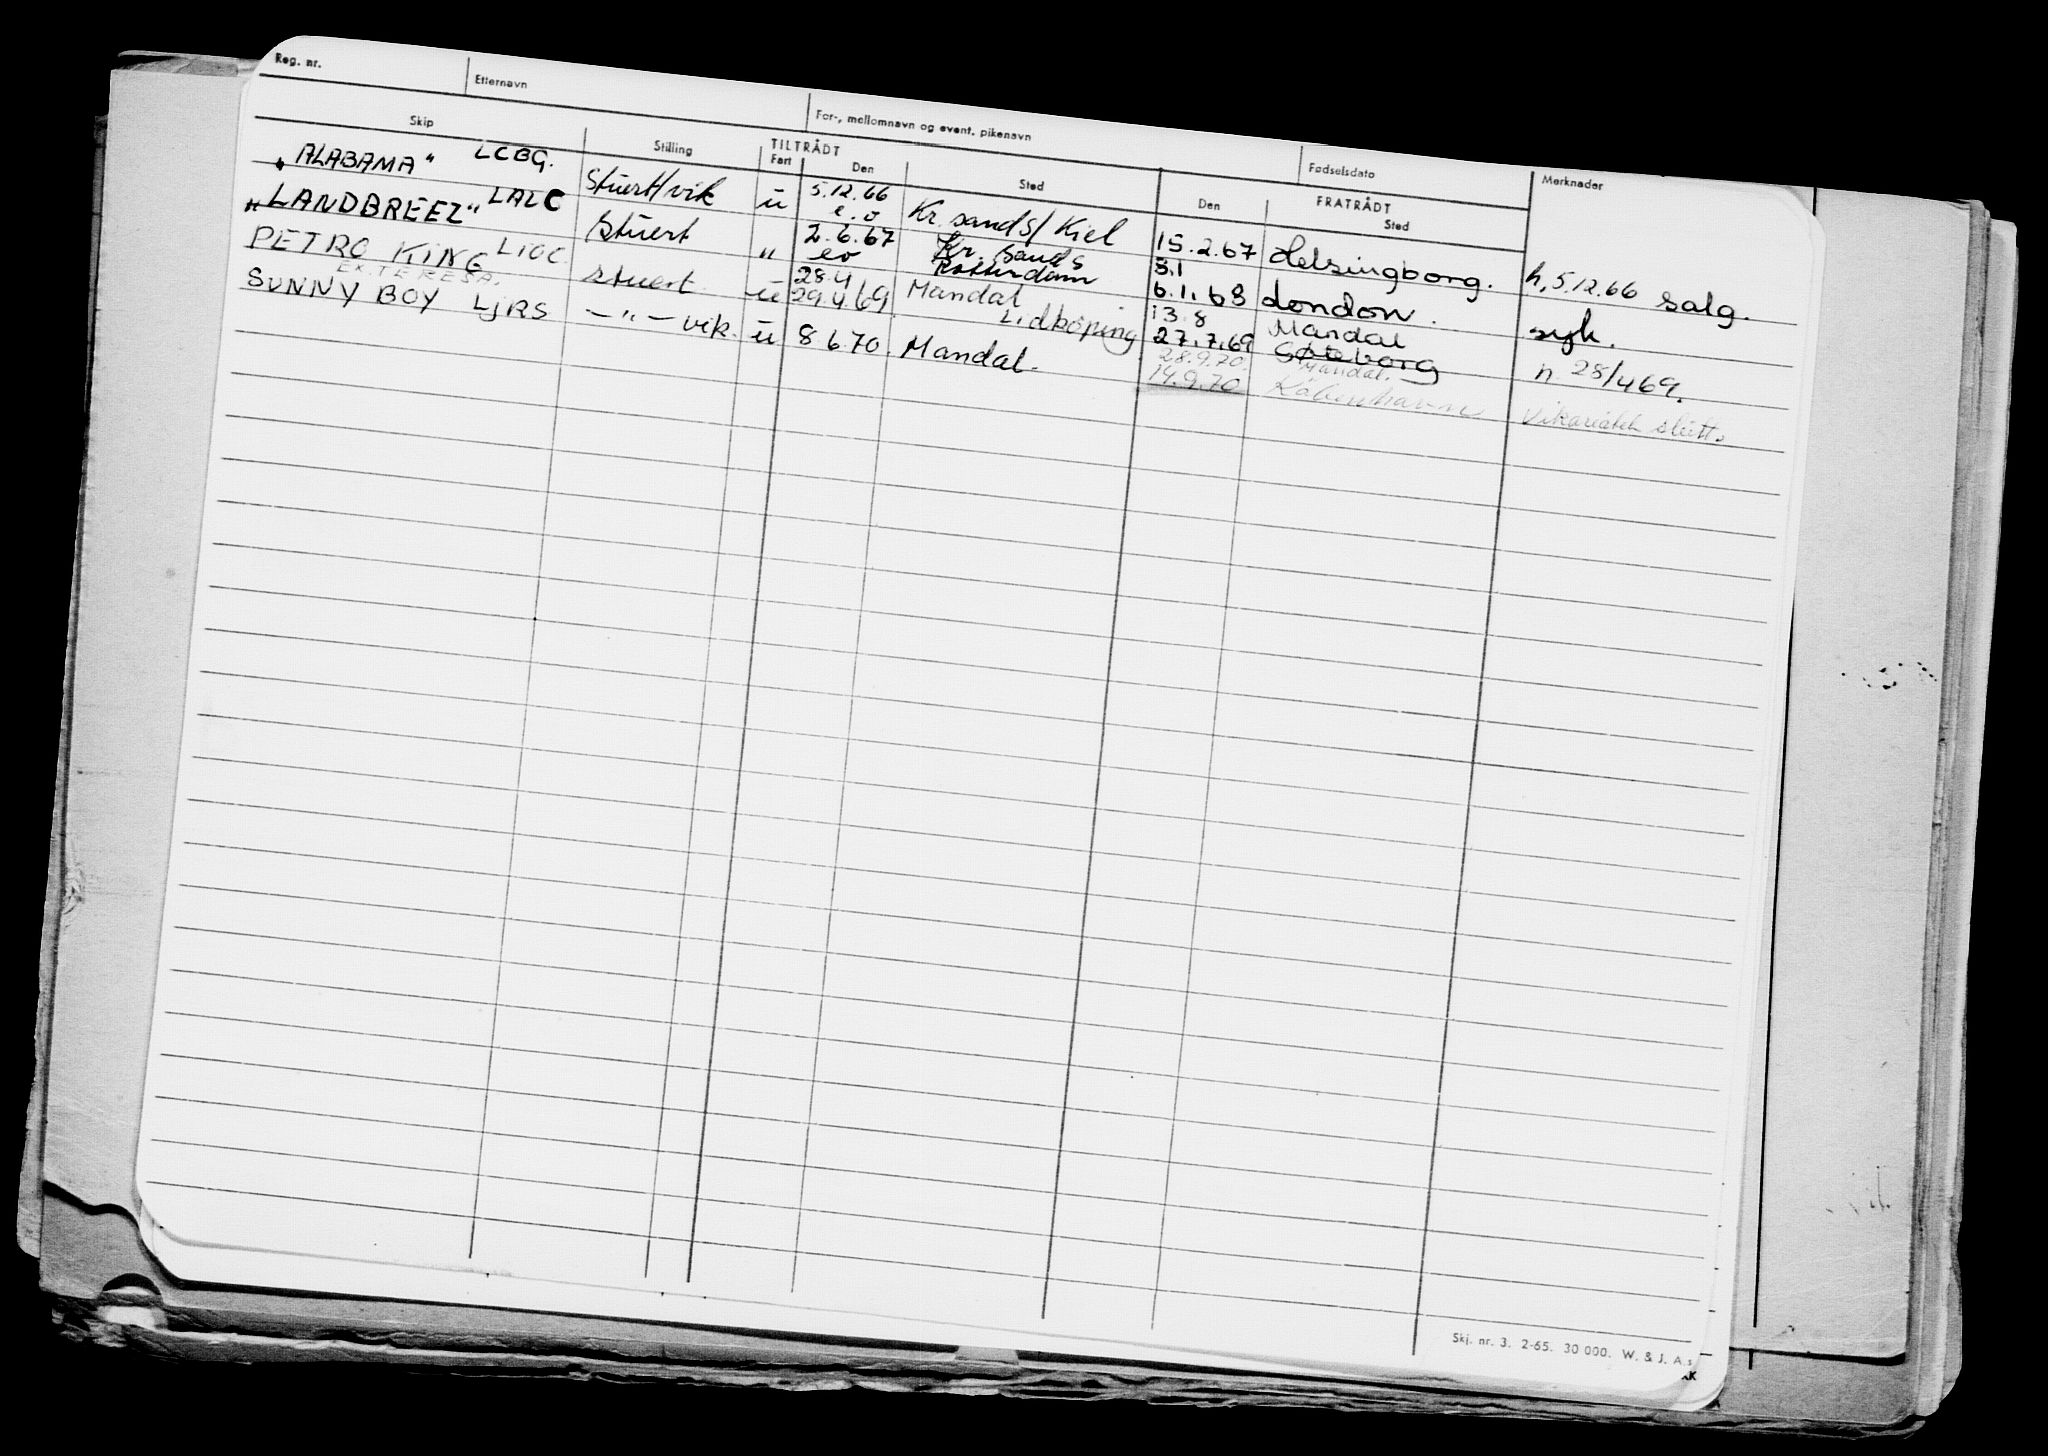 Reg. nr. Etternavn For-, mellomnavn og event. pikenavn Fødselsdato Merknader
Skip Stilling TILTRÅDT Fart Den Sted FRATRÅDT Den Sted
"ALABAMA" LCBG. Stuert/vik ü 5.12.66 Kr.sands/Kiel 15.2.67 Helsingborg. h, 5.12.66 salg.
e.o Kr. sands 3.1
"LANDBREEZ" LALC Stuert " 2.6.67 Rotterdam 6.1.68 London. syk.
eo
28.4 Mandal 13.8 Mandal
PETRO KING LIOC stuert. ü 29.4.69. Lidköping 27.7.69 Gøteborg n 28/4 69.
EX. TERESA. 28.9.70. Mandal.
SUNNY BOY LJRS — " — vik. ü 8.6.70. Mandal. 14.9.70 København Vikariatet slutt.
Skj. nr. 3. 2-65. 30 000. W. & J. A.s